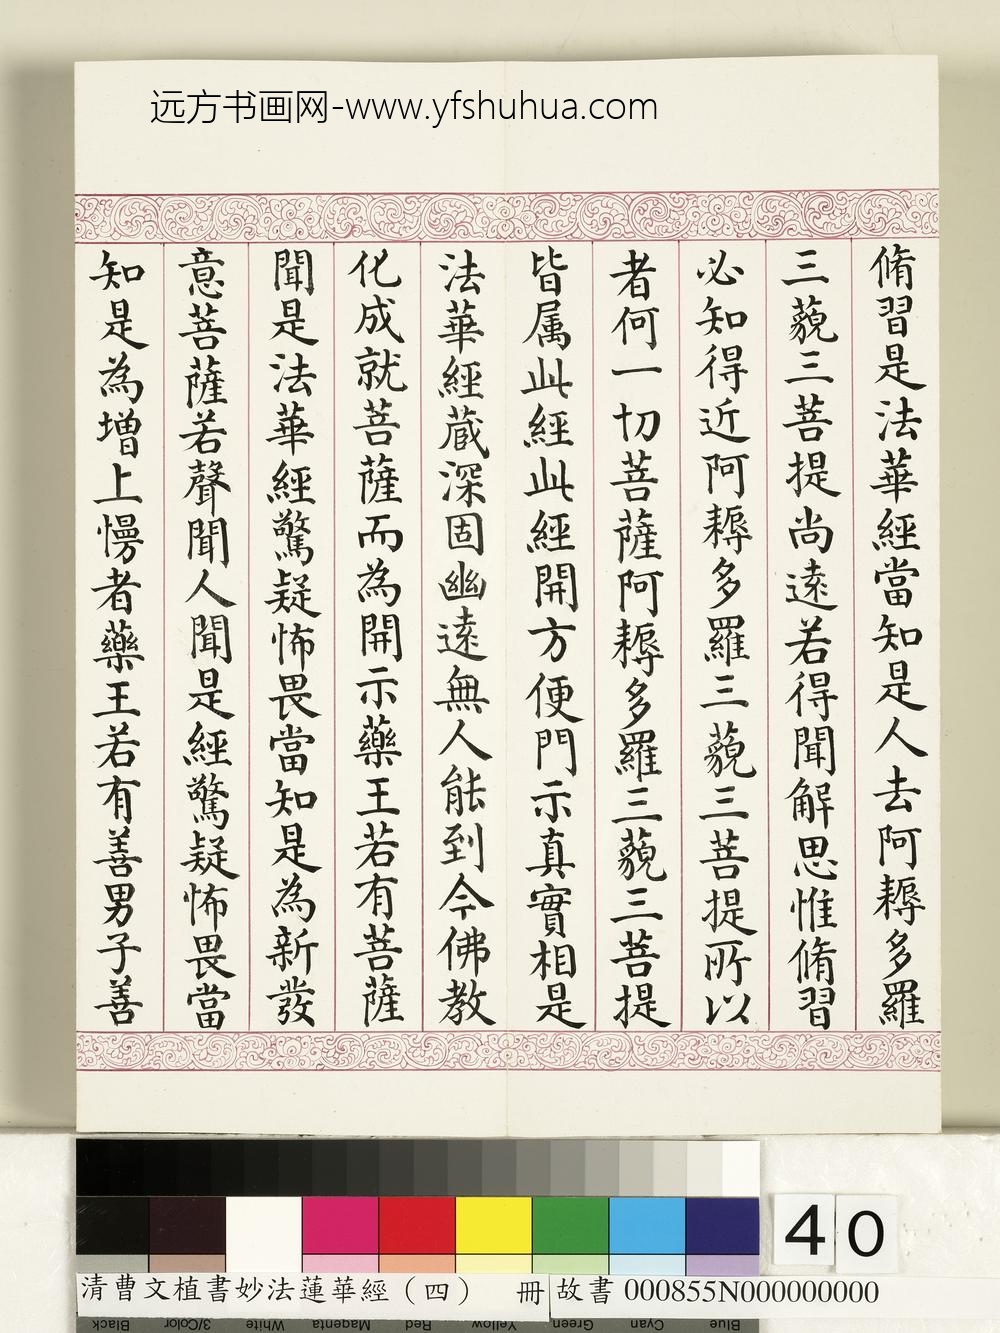 远方书画网-www.yfshuhua.com
脩習是法華經當知是人去阿耨多羅
三藐三菩提尚遠若得聞解思惟脩習
必知得近阿耨多羅三藐三菩提所以
者何一切菩薩阿耨多羅三藐三菩提
皆属此經此經開方便門示真實相是
法華經蔵深固幽遠無人能到今佛教
化成就菩薩而為開示藥王若有菩薩
聞是法華經驚疑怖畏當知是為新發
意菩薩若聲聞人聞是經驚疑怖畏當
知是為增上慢者藥王若有善男子善
40
清曹文植書妙法蓮華經（四） 冊
故書 000855N000000000
Black 3/Color White Magenta Red Yellow Green Cyan Blue